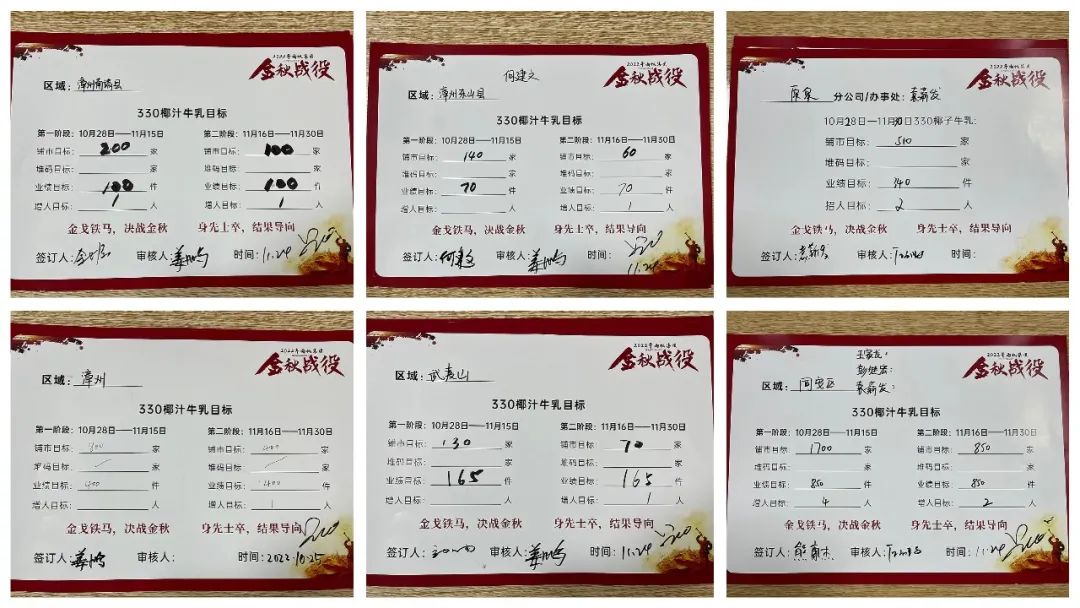 2022年南帆集团
金秋战役
区域：漳州南靖县
330椰汁牛乳目标
第一阶段：10月28日——11月15日 第二阶段：11月16日——11月30日
铺市目标：200 家 铺市目标：100 家
堆码目标： 家 堆码目标： 家
业绩目标：100 件 业绩目标：100 件
增人目标：1 人 增人目标：1 人
金戈铁马，决战金秋 身先士卒，结果导向
签订人： 审核人： 时间：11.24
金秋战役
何建文
区域：漳州东山县
330椰汁牛乳目标
第一阶段：10月28日——11月15日 第二阶段：11月16日——11月30日
铺市目标：140 家 铺市目标：60 家
堆码目标： 家 堆码目标： 家
业绩目标：70 件 业绩目标：70 件
增人目标： 人 增人目标：1 人
金戈铁马，决战金秋 身先士卒，结果导向
签订人： 审核人： 时间：
11.24
金秋战役
分公司/办事处：
10月28日——11月30日330椰子牛乳：
铺市目标：510 家
堆码目标： 家
业绩目标：340 件
招人目标：2 人
金戈铁马，决战金秋 身先士卒，结果导向
签订人： 审核人： 时间：
金秋战役
区域：漳州
330椰汁牛乳目标
第一阶段：10月28日——11月15日 第二阶段：11月16日——11月30日
铺市目标：300 家 铺市目标： 家
堆码目标： 家 堆码目标： 家
业绩目标：400 件 业绩目标：400 件
增人目标： 人 增人目标：1 人
金戈铁马，决战金秋 身先士卒，结果导向
签订人： 审核人： 时间：2022.10.25
金秋战役
区域：武夷山
330椰汁牛乳目标
第一阶段：10月28日——11月15日 第二阶段：11月16日——11月30日
铺市目标：130 家 铺市目标：70 家
堆码目标： 家 堆码目标： 家
业绩目标：165 件 业绩目标：165 件
增人目标： 人 增人目标：1 人
金戈铁马，决战金秋 身先士卒，结果导向
签订人： 审核人： 时间：11.24
金秋战役
区域：
330椰汁牛乳目标
第一阶段：10月28日——11月15日 第二阶段：11月16日——11月30日
铺市目标：1700 家 铺市目标：850 家
堆码目标： 家 堆码目标： 家
业绩目标：850 件 业绩目标：850 件
增人目标：4 人 增人目标：2 人
金戈铁马，决战金秋 身先士卒，结果导向
签订人： 审核人： 时间：11.24